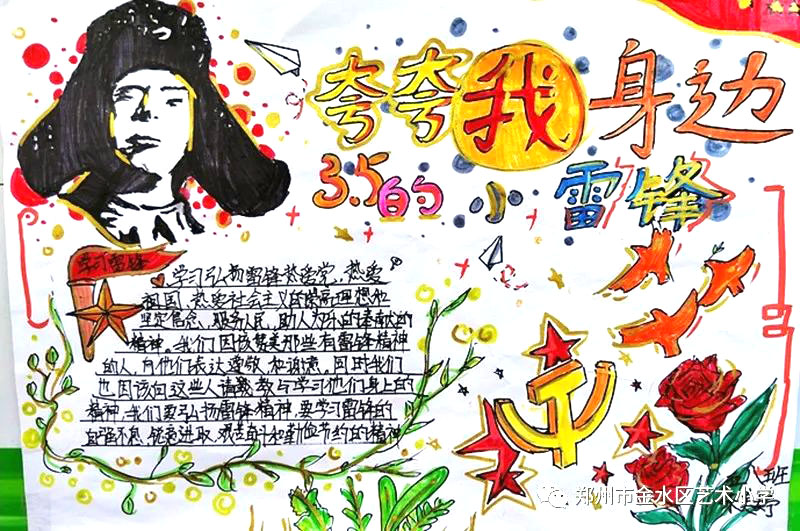 夸夸我身边
3.5的小雷锋
学习雷锋
学习弘扬雷锋热爱党、热爱
祖国、热爱社会主义的崇高理想和
坚定信念、服务人民、助人为乐的奉献的
精神,我们因该赞美那些有雷锋精神
的人,向他们表达尊敬和谢意,同时我们
也因该向这些人请教与学习他们身上的
精神,我们要弘扬雷锋精神,要学习雷锋的
自强不息、锐意进取、艰苦奋斗和勤俭节约的精神
八班
郑州市金水区艺术小学